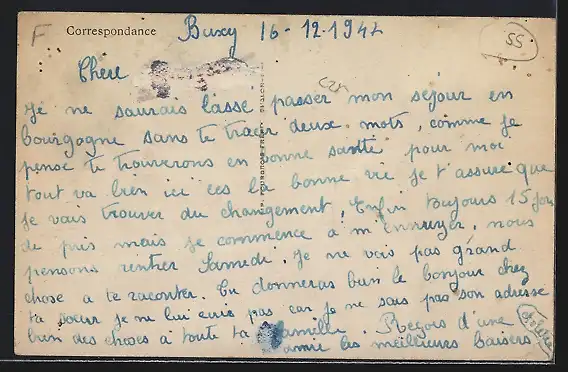 F
Correspondance
Buxy 16-12-1942
55
Chere
Je ne saurais laissé passer mon séjour en
bourgogne sans te tracer deux mots, comme je
pense te trouverons en bonne santé pour moi
tout va bien ici ces la bonne vie je t'assure que
je vais trouver du changement, Enfin toujours 15 jours
de pris mais je commence a m'ennuyer, nous
pensons rentrer Samedi. Je ne vois pas grand
chose a te raconter. Tu donneras bien le bonjour chez
ta soeur je ne lui ecris pas car je ne sais pas son adresse
bien des choses a toute ta famille. Reçois d'une
amie les meilleures baisers